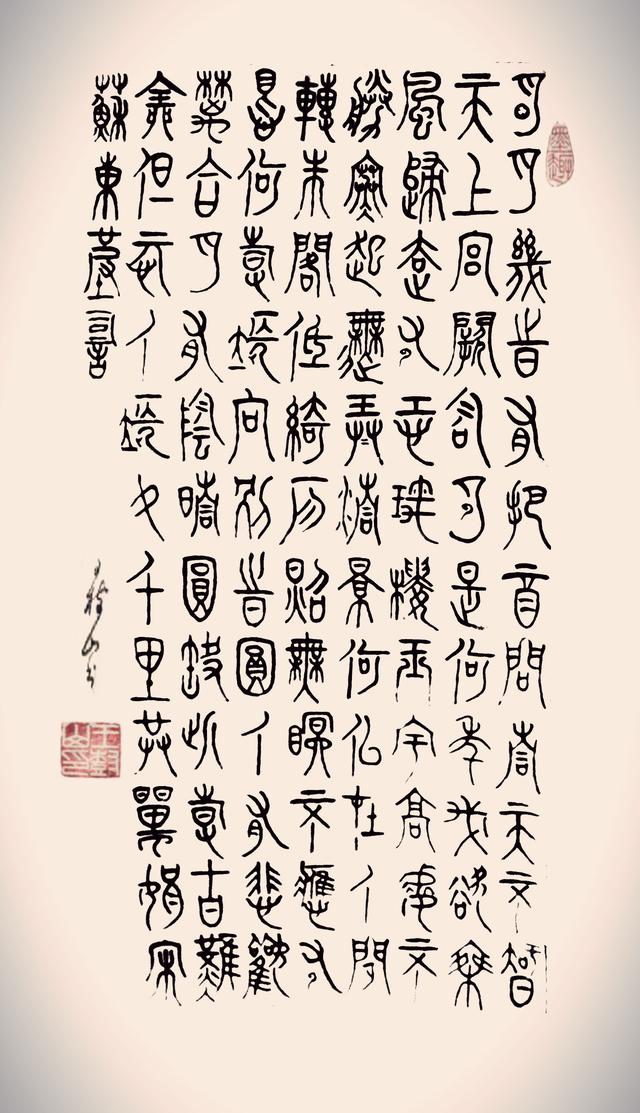 明月幾時有把酒問青天不知
天上宮闕今夕是何年我欲乘
風歸去又恐瓊樓玉宇高處不
勝寒起舞弄清影何似在人間
轉朱閣低綺戶照無眠不應有
恨何事長向別時圓人有悲歡
離合月有陰晴圓缺此事古難
全但願人長久千里共嬋娟宋
蘇東坡詞